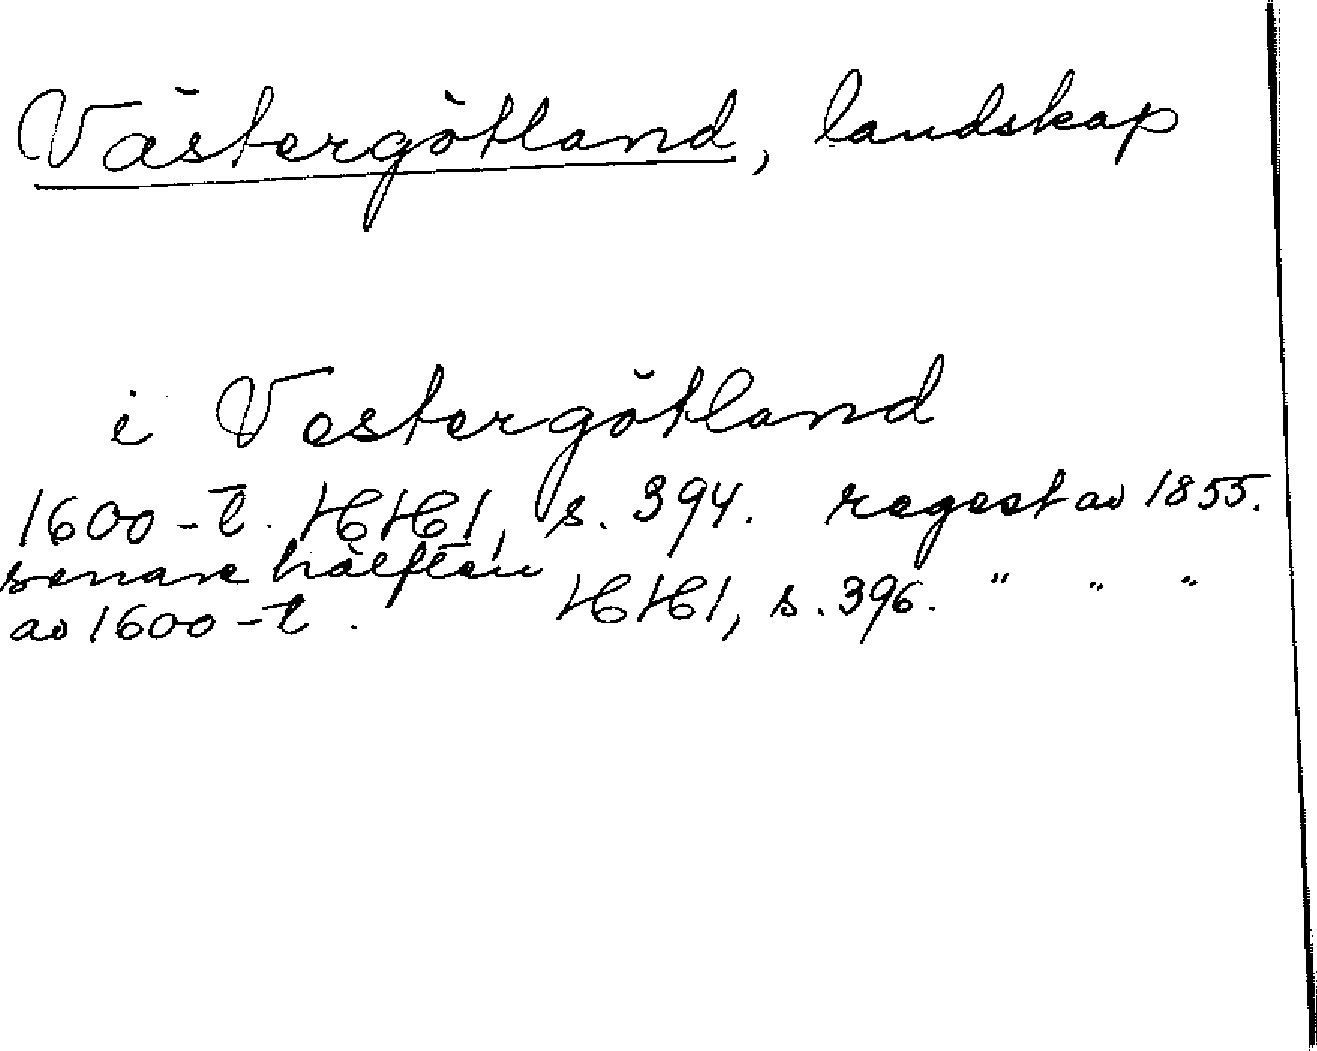 Västergötland, landskap
i Vestergötland
1600-t. HH1, s. 394. regest av 1855.
senare hälften
av 1600-t. HH1, s. 396. " " "